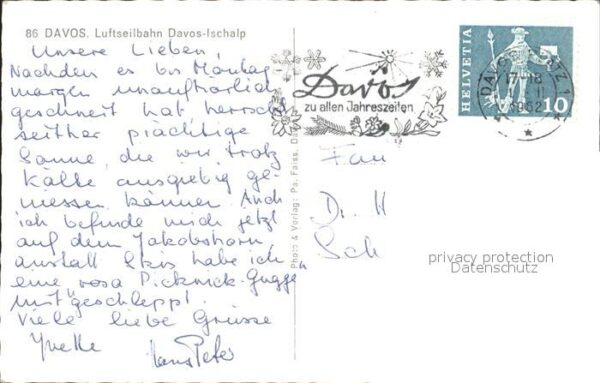 86 DAVOS. Luftseilbahn Davos-Ischalp
Unsere Lieben,
Nachdem es bis Montag-
morgen unaufhörlich
geschneit hat herrscht
seither prächtige
Sonne, die wir trotz
Kälte ausgiebig ge-
niessen können. Auch
ich befinde mich jetzt
auf dem Jakobshorn,
anstatt Skis habe ich
eine rosa Picknick-Gugge
mitgeschleppt.
Viele liebe Grüsse
Yvette Hans Peter
Davos
zu allen Jahreszeiten
HELVETIA
10
1962
Photo & Verlag: Pa. Faiss, Da
Frau
Dr. H
Sch
privacy protection
Datenschutz